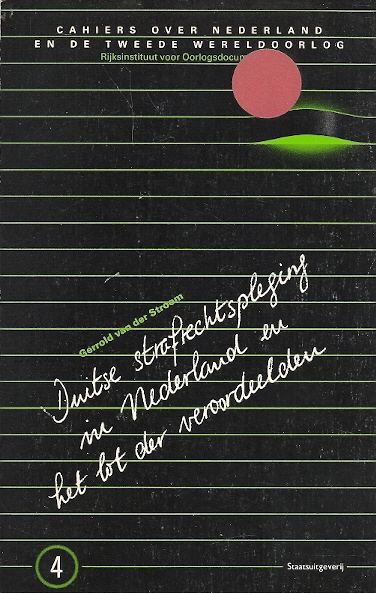 CAHIERS OVER NEDERLAND
EN DE TWEEDE WERELDOORLOG
Rijksinstituut voor
Gerrold van der Stroom
Duitse strafrechtspleging
in Nederland en
het lot der veroordeelden
4
Staatsuitgeverij